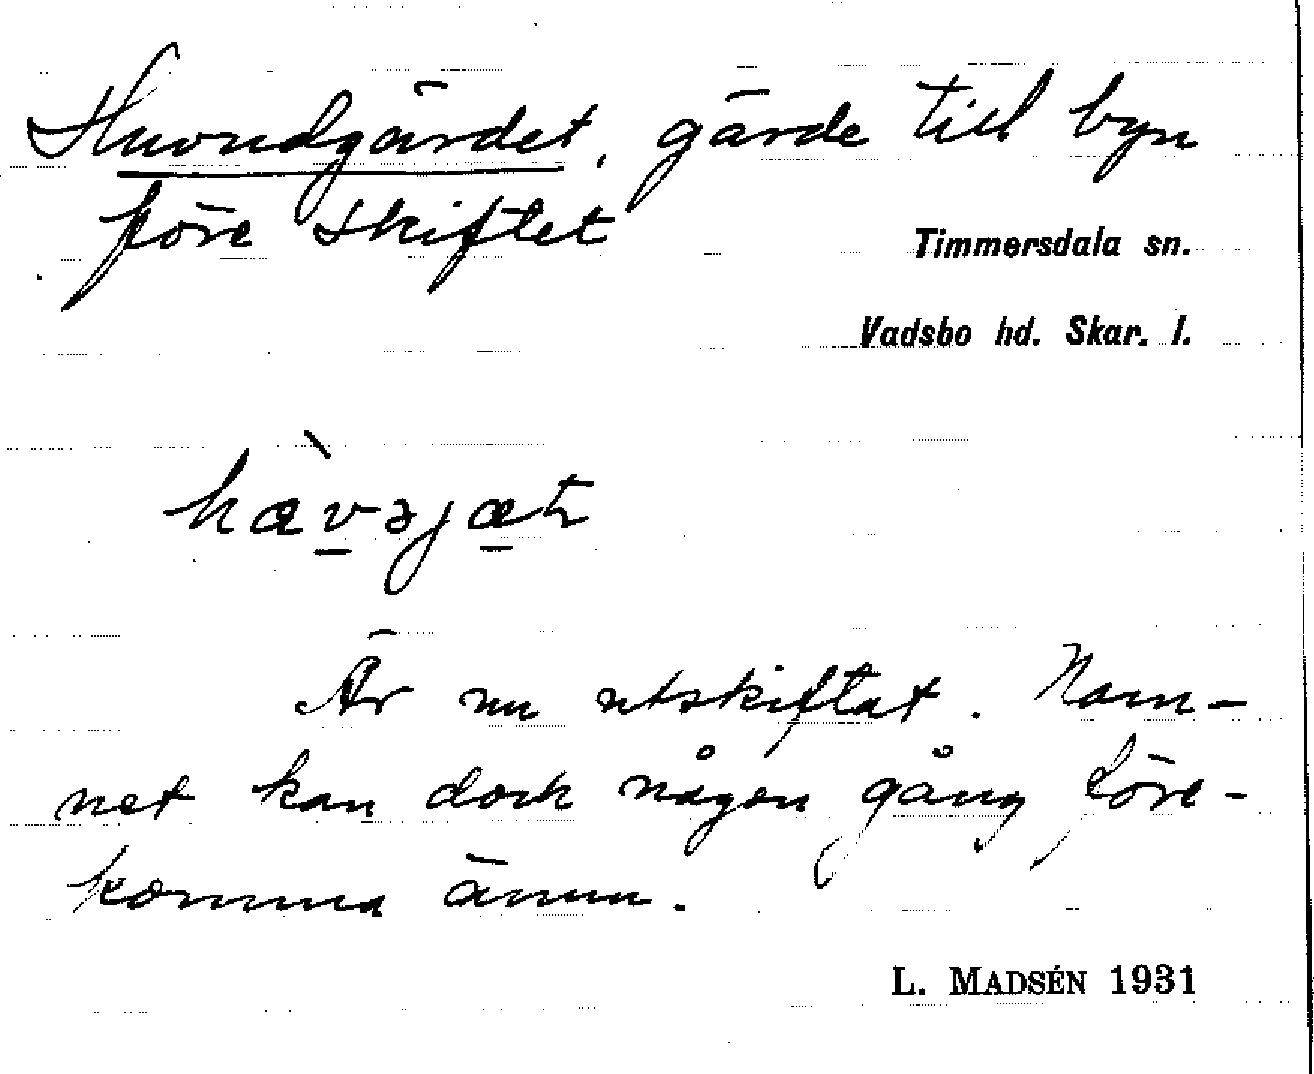 Huvudgärdet, gärde till byn
före skiftet
Timmersdala sn.
Vadsbo hd. Skar. l.
hævəjæt
Är nu utskiftat. Nam-
net kan dock någon gång före-
komma ännu.
L. MADSÉN 1931